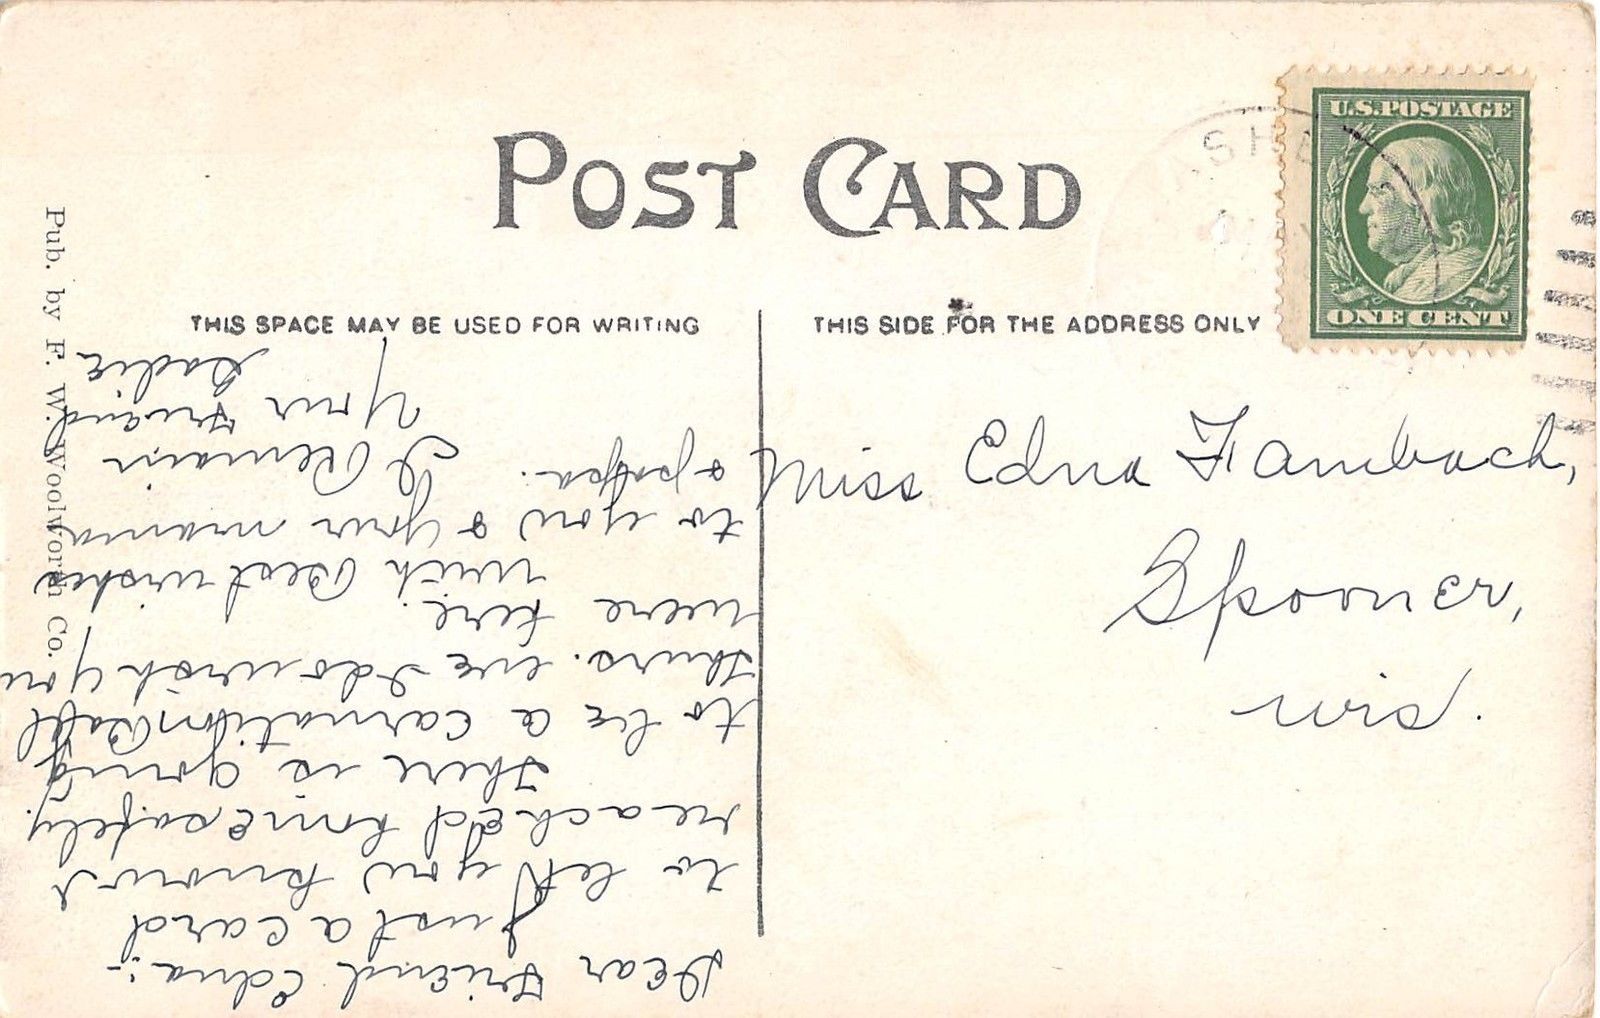 POST CARD
THIS SPACE MAY BE USED FOR WRITING
THIS SIDE FOR THE ADDRESS ONLY
U.S. POSTAGE
ONE CENT
Pub. by F. W. Woolworth Co.
Miss Edna Fambach,
Spooner,
Wis.
Dear Friend Edna:-
Just a card
to let you know I
reached home safely.
There is going
to be a carnation Ball
Thurs. eve I do wish you
were here.
with Best wishes
to you & your mama
& papa.
I Remain
Your Friend
Sadie